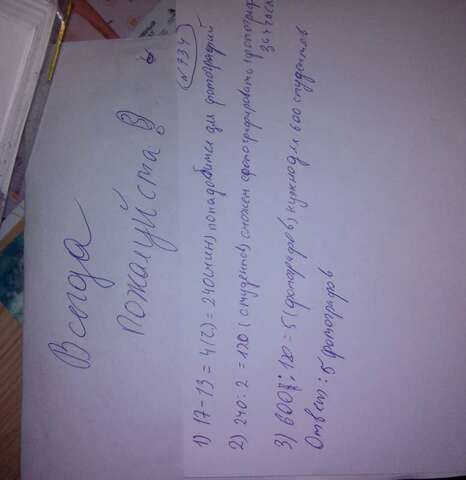 Всегда
пожалуйста
№ 734
1) 17-13 = 4(ч) = 240(мин) понадобится для фотографий
2) 240:2 = 120 (студентов) сможет сфотографировать 1 фотограф
за 4 часа
3) 600:120 = 5 (фотографов) нужно для 600 студентов
Ответ: 5 фотографов